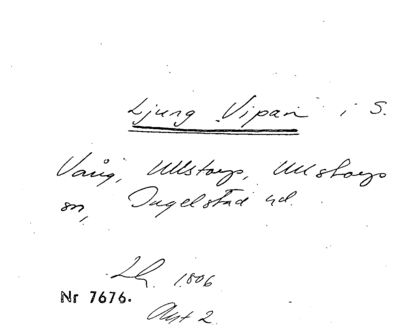 Ljung Vipan i S.
Vång, Ullstorps, Ullstorps
sn, Ingelstad hd.
Lh. 1806
Nr 7676.
Akt 2